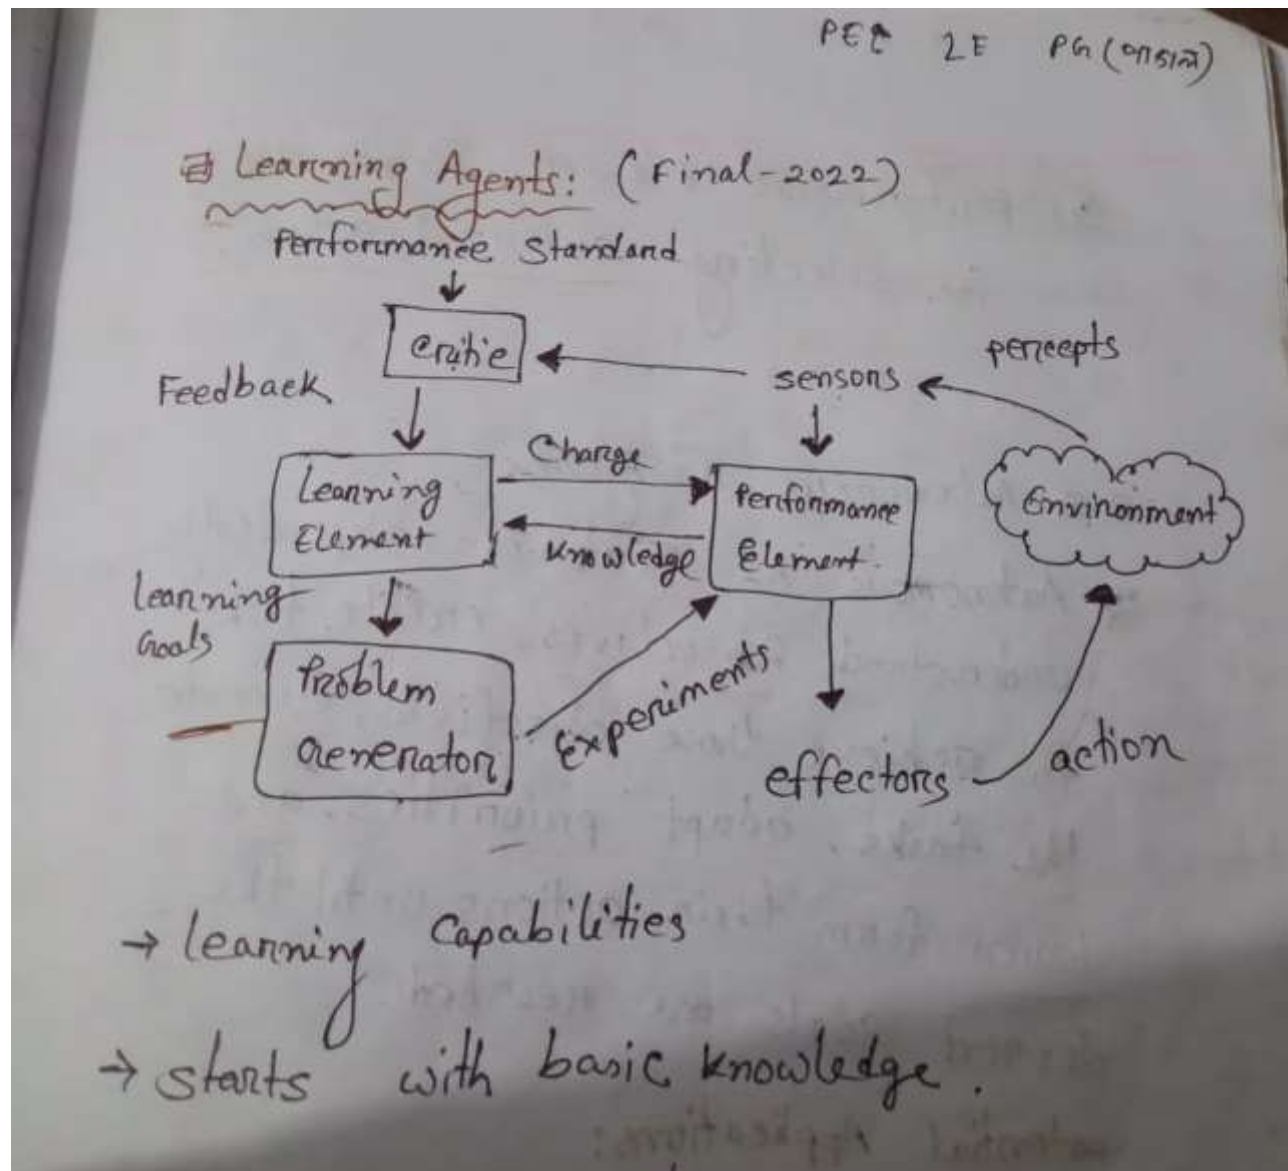 PEC 2E PG
Learning Agents: (Final-2022)
Performance Standard
Critic
percepts
sensors
Feedback
Change
Learning
Element
Performance
Element
Environment
Knowledge
Learning
Goals
Problem
Generator
Experiments
effectors
action
→ learning Capabilities
→ starts with basic knowledge.